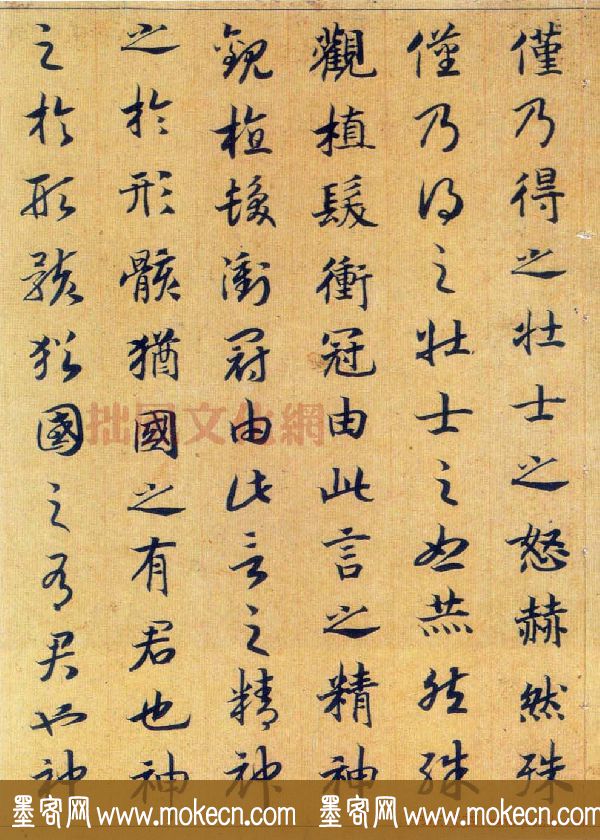 僅乃得之壯士之怒赫然殊
僅乃得之壯士之怒赫然殊
觀植髮衝冠由此言之精神
觀植髮衝冠由此言之精神
之於形骸猶國之有君也神
之於形骸猶國之有君也神
拙風文化網
墨客网 www.mokecn.com 墨客网 www.mokecn.com